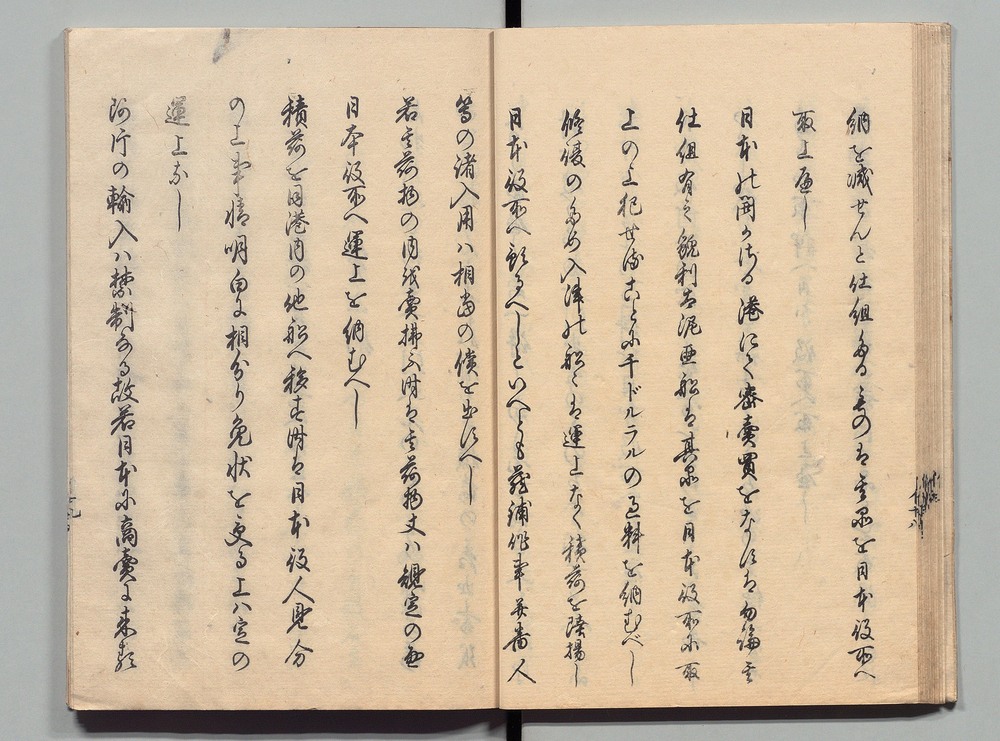 納を減せんと仕組たるものは其品を日本役所へ
取上へし
日本の開かさる港にて密売買をなすは勿論其
仕組有之貌利太泥亜船は其品を日本役所に取
上の上犯せることに千ドルラルの過料を納むべし
修復のため入津の船々は運上なく積荷を陸揚し
日本役所へ預るへしといへとも蔵舗作事并番人
等の諸入用ハ相当の償を出すへし
若其荷物の内売払ふ時は其荷物丈ハ定の
日本役所へ運上を納むへし
積荷を同港内の他船へ移す時は日本役人見分
の上事情明白に相分り免状を受る上ハ定の
運上なし
阿片の輸入ハ禁制なる故若日本に商売に来